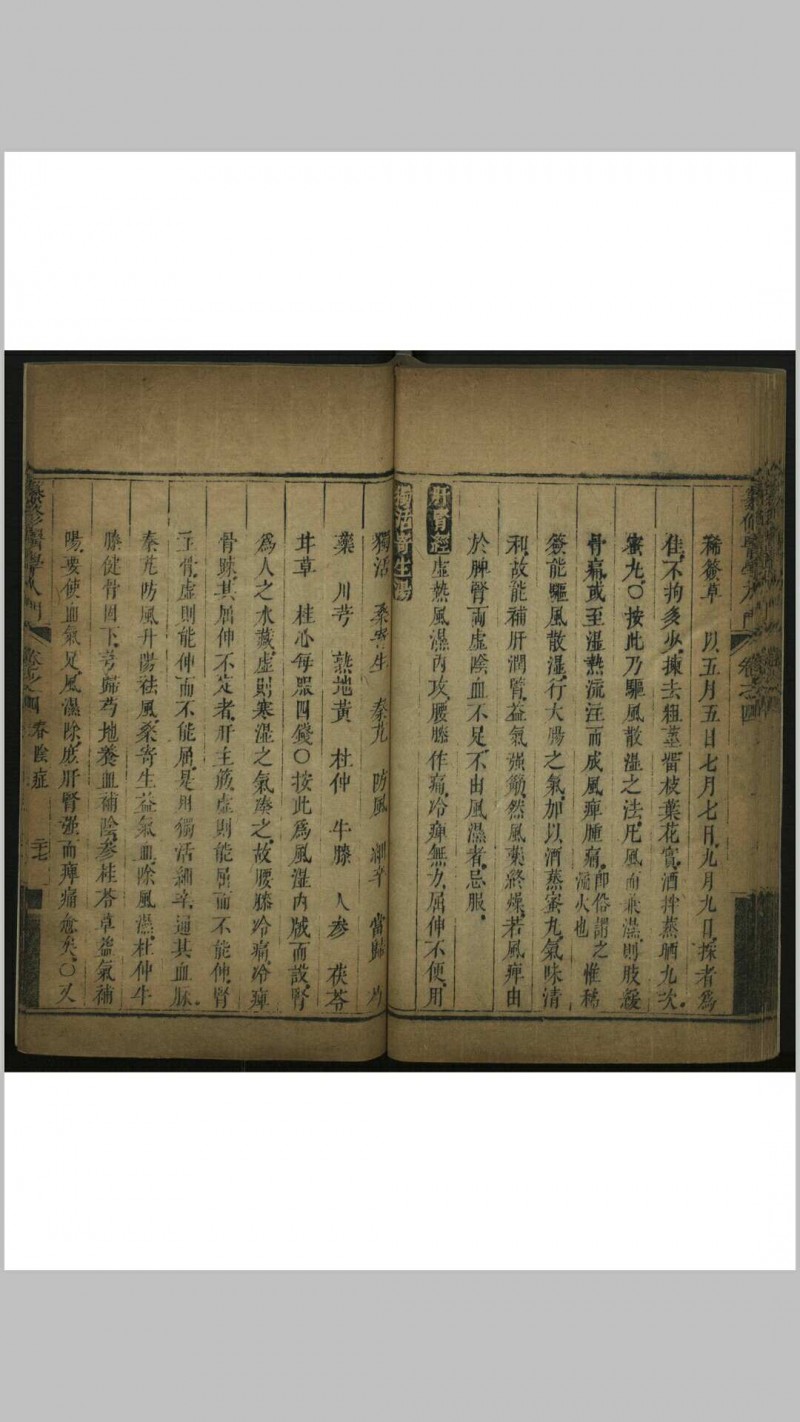 豨薟草　以五月五日七月七日九月九日採者爲
佳不拘多少揀去粗莖畱枝葉花實酒拌蒸晒九次
蜜丸〇按此乃驅風散湿之法凡風而兼濕則肢緩
骨痛或至湿熱流注而成風痺腫痛卽俗謂之流火也惟豨
薟能驅風散湿行大腸之氣加以酒蒸蜜丸氣味清
和故能補肝潤腎益氣强筋然風葉終燥若風痺由
於脾腎両虚陰血不足不由風濕者忌服
肝腎經虚熱風濕內攻腰膝作痛冷痺無力屈伸不便用
獨活寄生湯
獨活　桑寄生　秦艽　防風　細辛　當歸　芍
藥　川芎　熟地黃　杜仲　牛膝　人參　茯苓
甘草　桂心每服四錢〇按此爲風湿內臧而設腎
爲人之水藏虚則寒湿之氣湊之故腰膝冷痛冷痺
骨踈其屈伸不定者肝主筋虚則能屈而不能伸腎
主骨虚則能伸而不能屈是用獨活細辛通其血脉
秦艽防風升陽祛風桑寄生益氣血除風濕杜仲牛
膝健骨固下芎歸芍地養血補陰參桂苓草益氣補
陽要使血氣足風濕除庶肝腎强而痺痛愈矣〇又
醫學入門　卷之四　春陰症　二十七